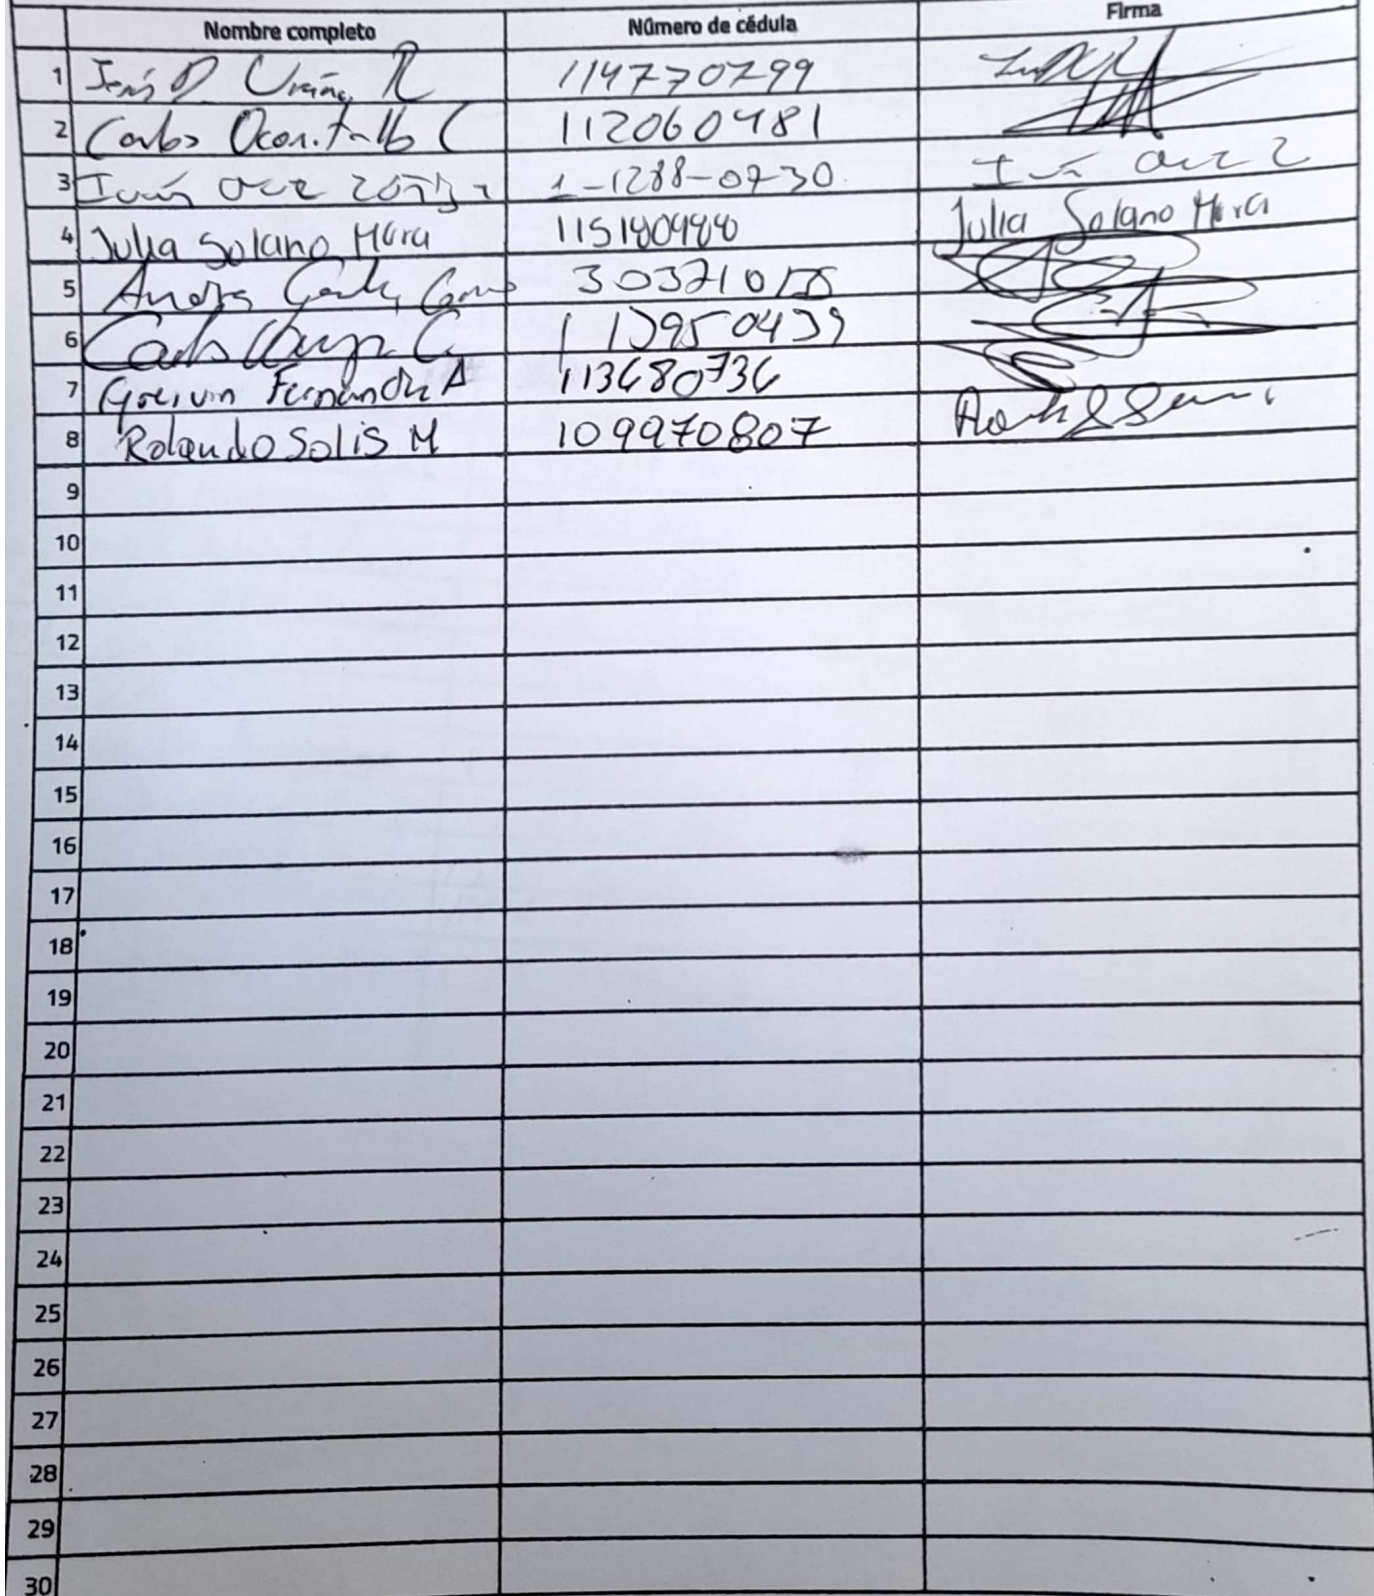 Nombre completo Número de cédula Firma
1 Jesús D Ureña R 114770799
2 Carlos 112060481
3 Iván 1-1288-0730
4 Julia Solano Mora 115180988 Julia Solano Mora
5 Andrés 30371
6 Carlos 113950439
7 Greivin Fernández A 113680736
8 Rolando Solis M 109970807
9
10
11
12
13
14
15
16
17
18
19
20
21
22
23
24
25
26
27
28
29
30